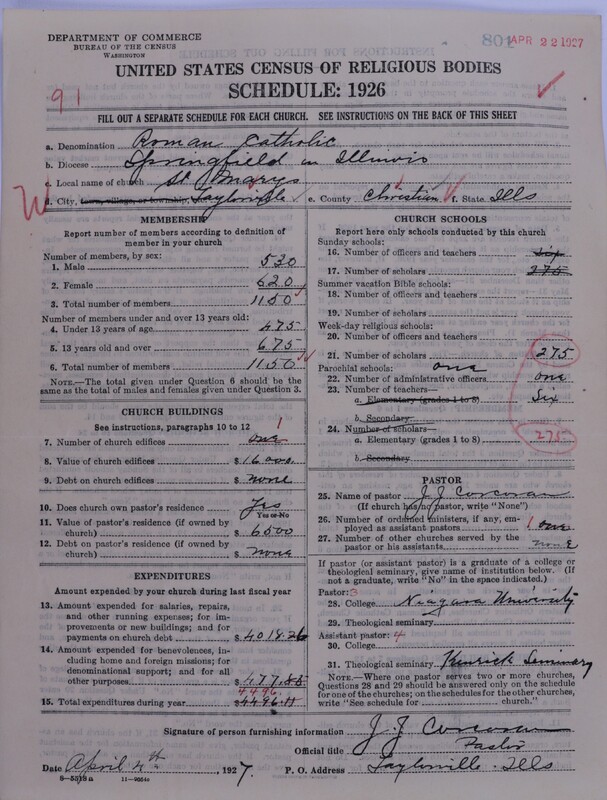 DEPARTMENT OF COMMERCE
BUREAU OF THE CENSUS
WASHINGTON
801 APR 22 1927
UNITED STATES CENSUS OF RELIGIOUS BODIES
SCHEDULE: 1926
91
FILL OUT A SEPARATE SCHEDULE FOR EACH CHURCH. SEE INSTRUCTIONS ON THE BACK OF THIS SHEET
a. Denomination Roman Catholic
b. Diocese Springfield in Illinois
c. Local name of church St Marys
d. City, town, village, or township, Taylorville e. County Christian f. State Ills
MEMBERSHIP
Report number of members according to definition of
member in your church
Number of members, by sex:
1. Male 530
2. Female 620
3. Total number of members 1150
Number of members under and over 13 years old:
4. Under 13 years of age 475
5. 13 years old and over 675
6. Total number of members 1150
NOTE.—The total given under Question 6 should be
the same as the total of males and females given under Question 3.
CHURCH BUILDINGS
See instructions, paragraphs 10 to 12
7. Number of church edifices one 1
8. Value of church edifices $ 16000
9. Debt on church edifices $ none
10. Does church own pastor's residence Yes
Yes or No
11. Value of pastor's residence (if owned by
church) $ 6500
12. Debt on pastor's residence (if owned by
church) $ none
EXPENDITURES
Amount expended by your church during last fiscal year
13. Amount expended for salaries, repairs,
and other running expenses; for im-
provements or new buildings; and for
payments on church debt $ 4018.26
14. Amount expended for benevolences,
including home and foreign missions; for
denominational support; and for all
other purposes $ 477.85
4496
15. Total expenditures during year $ 4496.11
CHURCH SCHOOLS
Report here only schools conducted by this church
Sunday schools:
16. Number of officers and teachers six
17. Number of scholars 275
Summer vacation Bible schools:
18. Number of officers and teachers
19. Number of scholars
Week-day religious schools:
20. Number of officers and teachers
21. Number of scholars 275
Parochial schools: one
22. Number of administrative officers one
23. Number of teachers—
a. Elementary (grades 1 to 8) Six
b. Secondary
24. Number of scholars—
a. Elementary (grades 1 to 8) 275
b. Secondary
PASTOR
25. Name of pastor J. J. Corcoran
(If church has no pastor, write "None")
26. Number of ordained ministers, if any, em-
ployed as assistant pastors 1 one
27. Number of other churches served by the
pastor or his assistants none
If pastor (or assistant pastor) is a graduate of a college or
theological seminary, give name of institution below. (If
not a graduate, write "No" in the space indicated.)
Pastor: 3
28. College Niagara University
29. Theological seminary
Assistant pastor: 4
30. College
31. Theological seminary Kenrick Seminary
NOTE.—Where one pastor serves two or more churches,
Questions 28 and 29 should be answered only on the schedule
for one of the churches; on the schedules for the other churches,
write "See schedule for church."
Signature of person furnishing information J. J. Corcoran
Official title Pastor
Date April 4th, 1927. P. O. Address Taylorville. Ills
8—5319 a 11—9664